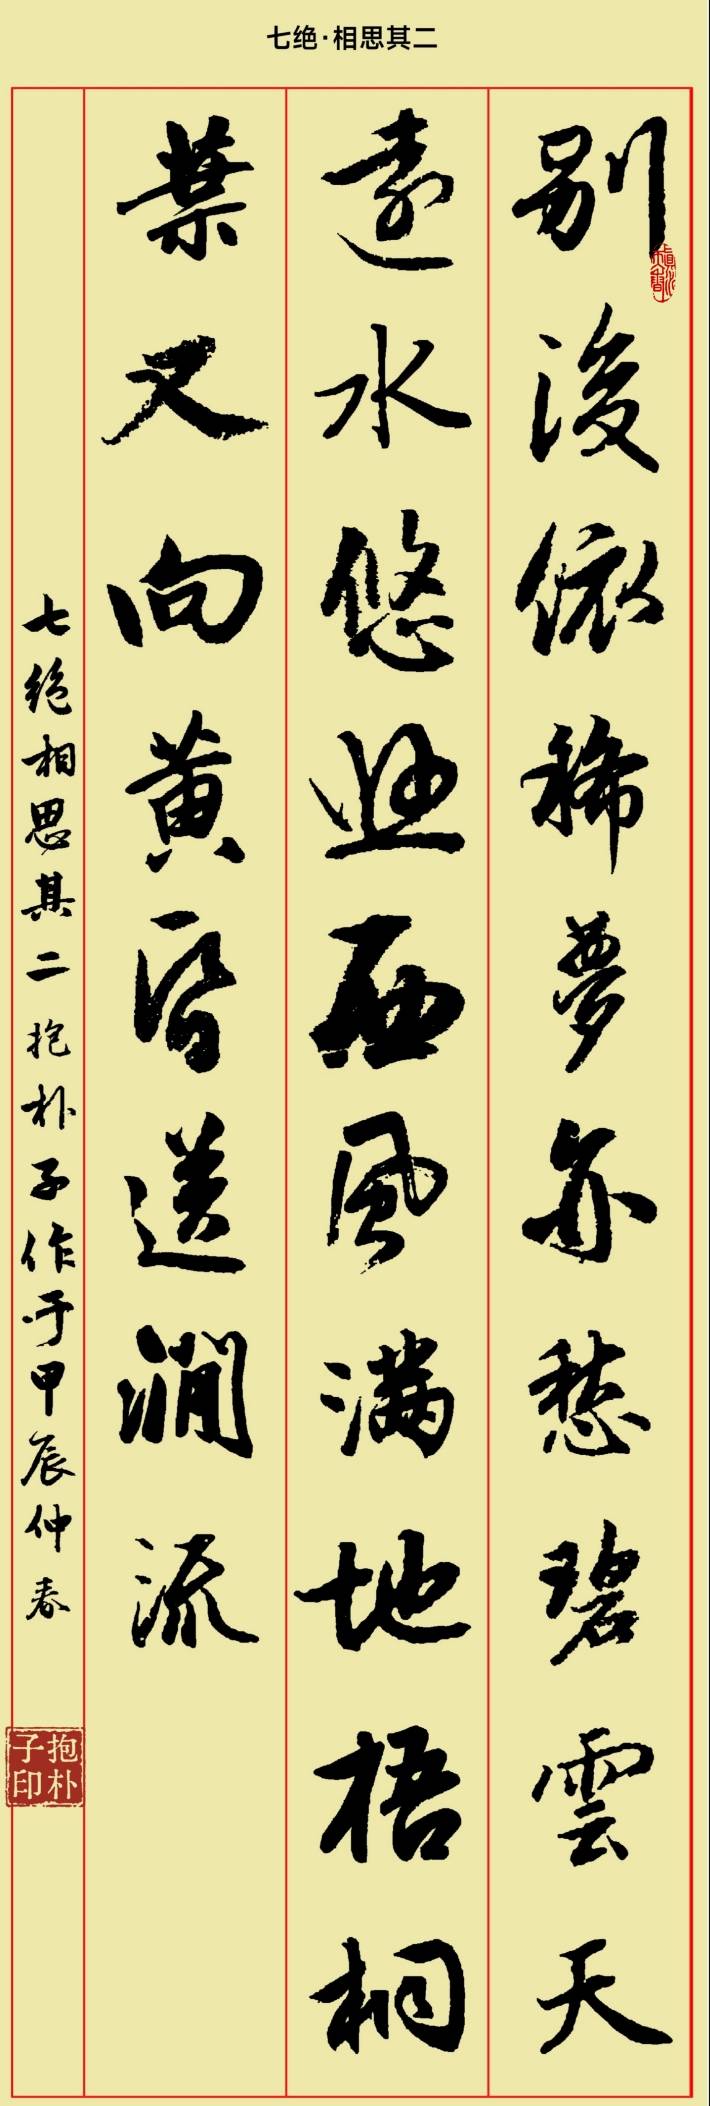 七绝·相思其二
别後依稀夢亦愁碧雲天
遠水悠悠西風滿地梧桐
葉又向黄昏送澗流
七绝相思其二抱朴子作于甲辰仲春
抱朴
子印